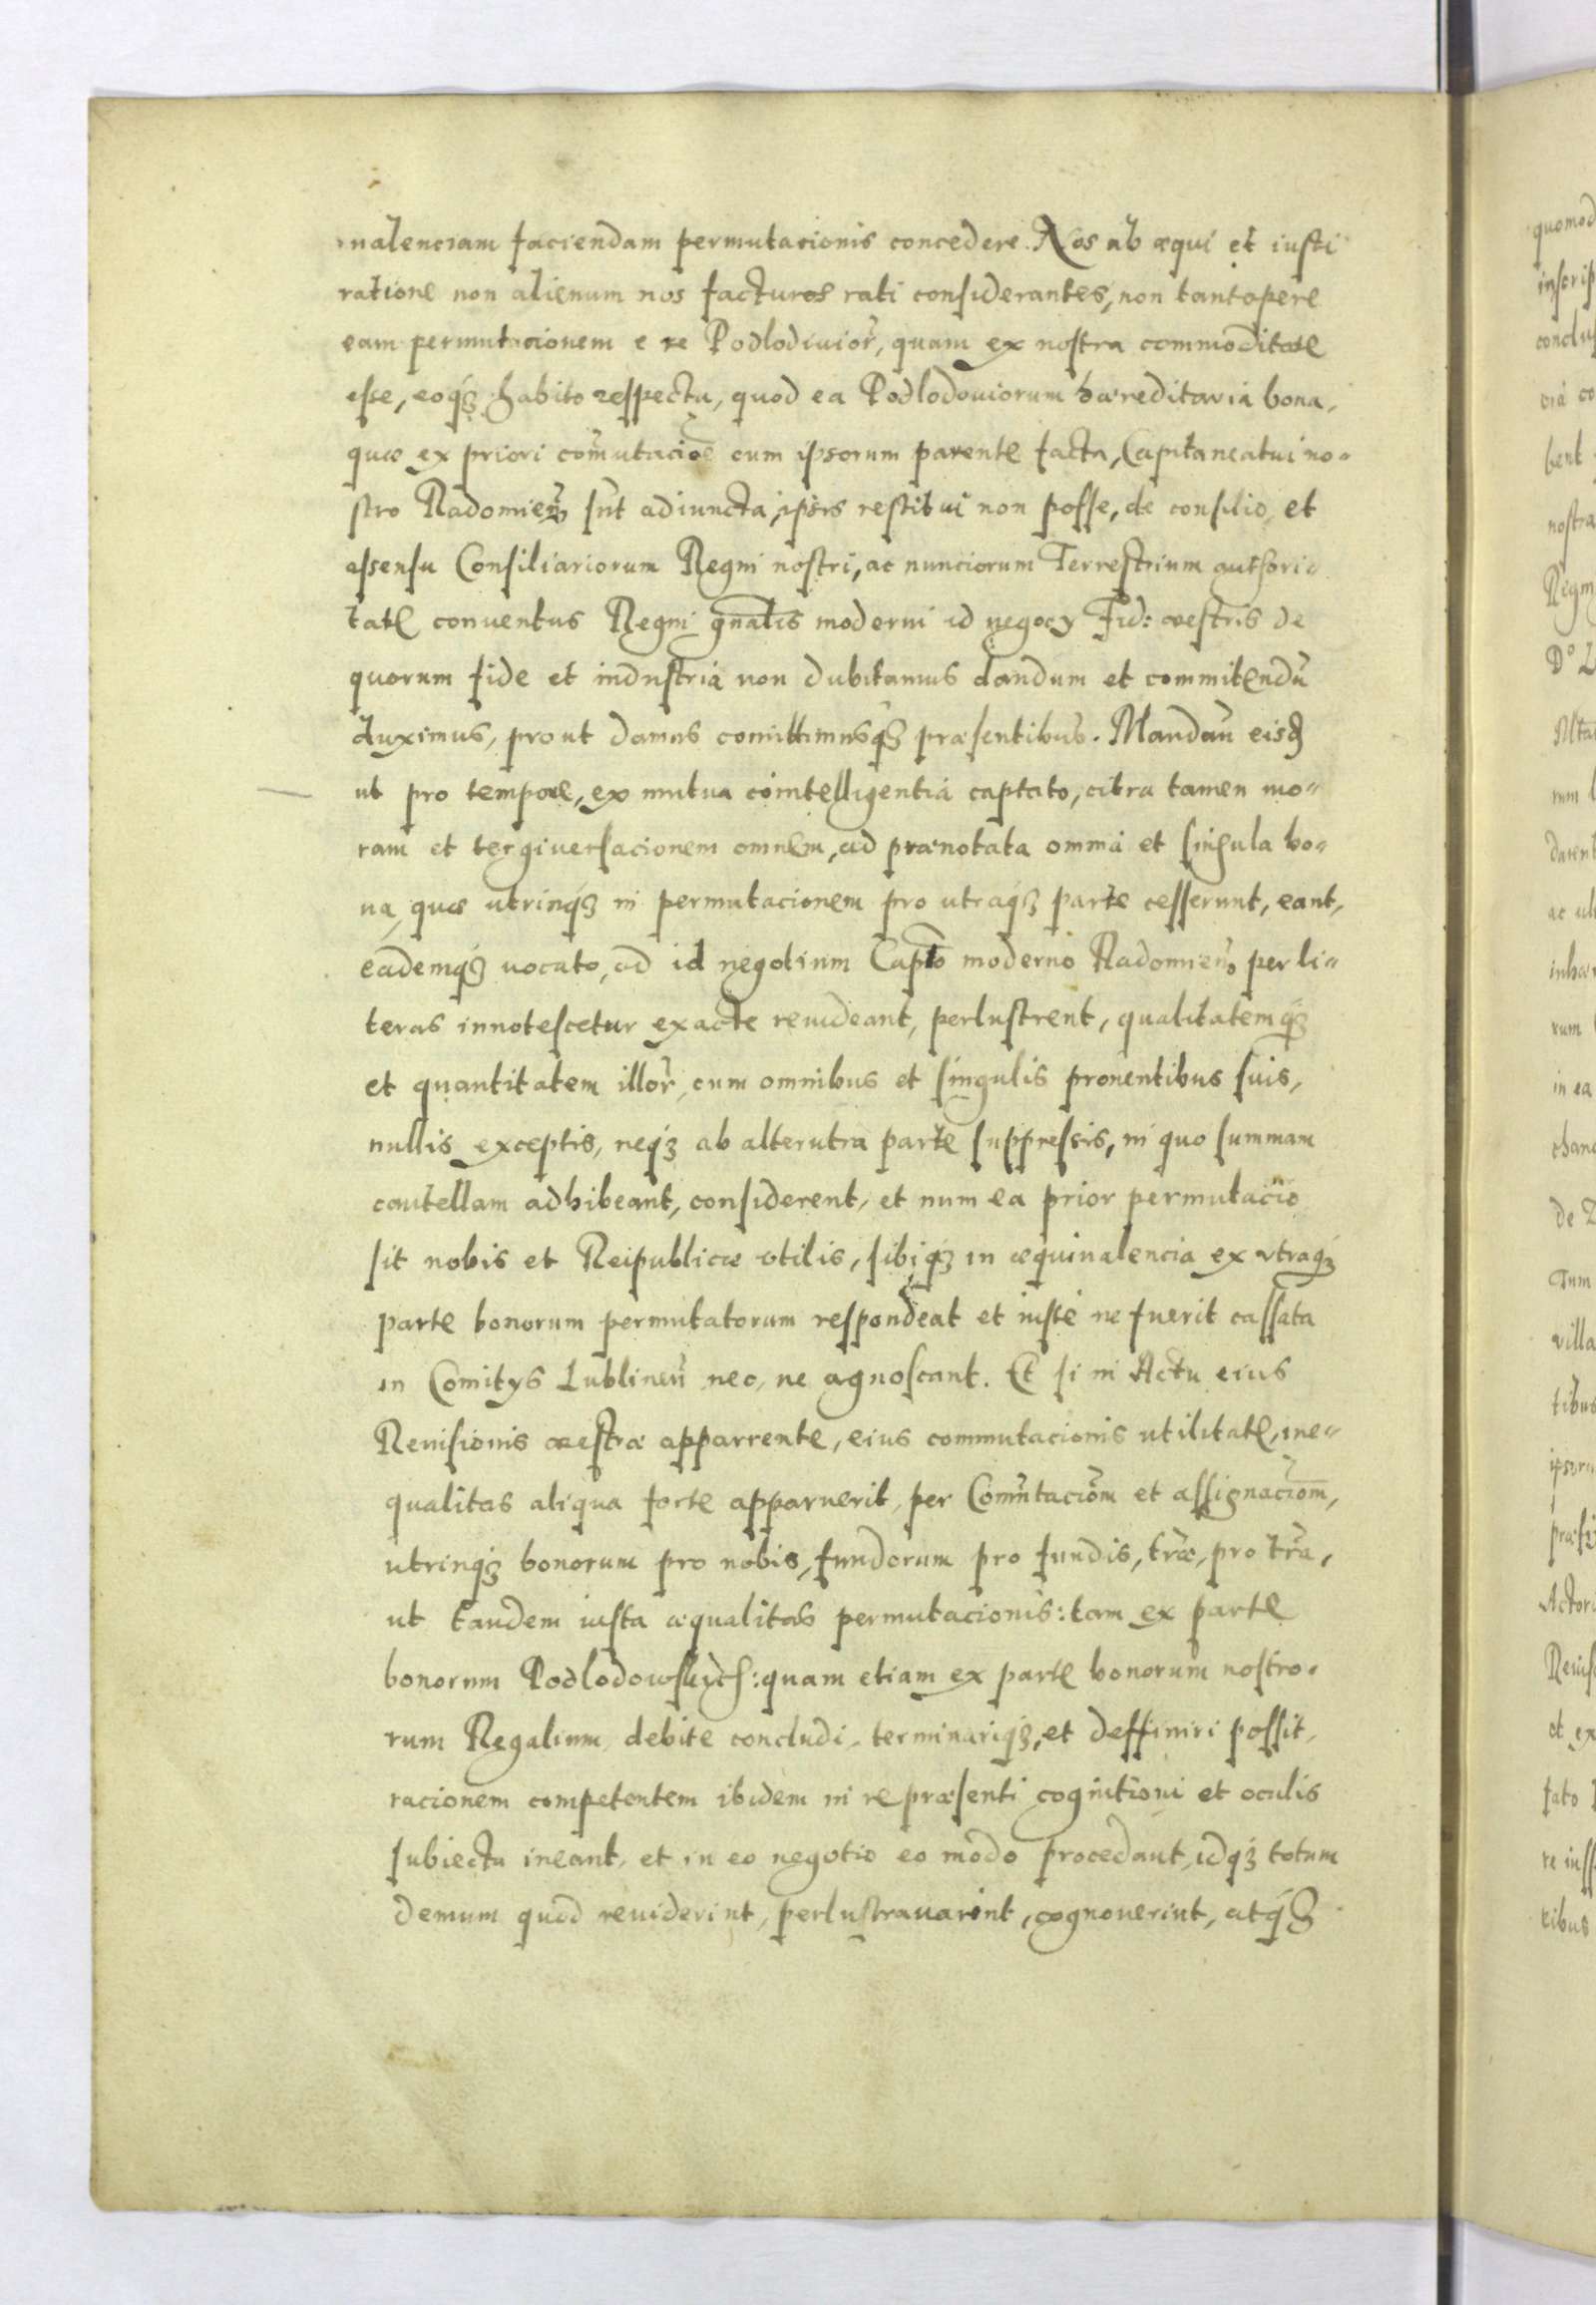 ualenciam faciendam permutacionis concedere. Nos ab æqui et iusti
ratione non alienum nos facturos rati considerantes, non tantopere
eam permutacionem e re Podlodiuior̃, quam ex nostra commoditate
esse, eoq́ꝫ habito respectu, quod ea Podlodouiorum hæreditaria bona,
quæ ex priori com̃utacio̅e cum ipsorum parente facta, Capitaneatui no-
stro Radomień sũt adiuncta, ipsis restitui non posse, de consilio, et
assensu Consiliariorum Regni nostri, ac nunciorum Terrestrium authori-
tate conuentus Regni gn̅alis moderni id negocy Fid: væstris de
quorum fide et industria non dubitamus dandum et commitendũ
duximus, prout damus comittimusq́ꝫ præsentibus. Mandañ eisđ
ut pro tempore, ex mutua cointelligentia captato, citra tamen mo-
ram et tergiuersacionem omnem, ad prænotata omnia et singula bo-
na, quæ utrinq́ꝫ in permutacionem pro utraq́ꝫ parte cesserunt, eant,
eademq́ꝫ uocato, ad id negotium Cap̅to moderno Radomień, per li-
teras innotescetur exacte reuideant, perlustrent, qualitatemq́ꝫ
et quantitatem illor̃, cum omnibus et singulis prouentibus suis,
nullis exceptis, neq́ꝫ ab alterutra parte suppressis, in quo summam
cautellam adhibeant, considerent, et num ea prior permutacio
sit nobis et Reipublicæ vtilis, sibiq́ꝫ in æquiualencia ex vtraq́ꝫ
parte bonorum permutatorum respondeat et iuste ne fuerit cassata
in Comitys Lublineñ nec, ne agnoscant. Et si in Actu eius
Reuisionis væstræ apparrente, eius commutacionis utilitate, ine-
qualitas aliqua forte apparuerit, per Com̃utacio̅m et assignacio̅m,
utrinq́ꝫ bonorum pro nobis, fundorum pro fundis, tr̃æ, pro tr̃a,
ut tandem iusta æqualitas permutacionis: tam ex parte
bonorum Podlodowskich: quam etiam ex parte bonorum nostro-
rum Regalium debite concludi, terminariq́ꝫ, et deffiniri possit,
racionem competentem ibidem in re præsenti cognitioni et oculis
subiecta ineant, et in eo negotio eo modo procedant, idq́ꝫ totum
demum quod reuiderint, perlustrauarint, cognouerint, atq́ꝫ